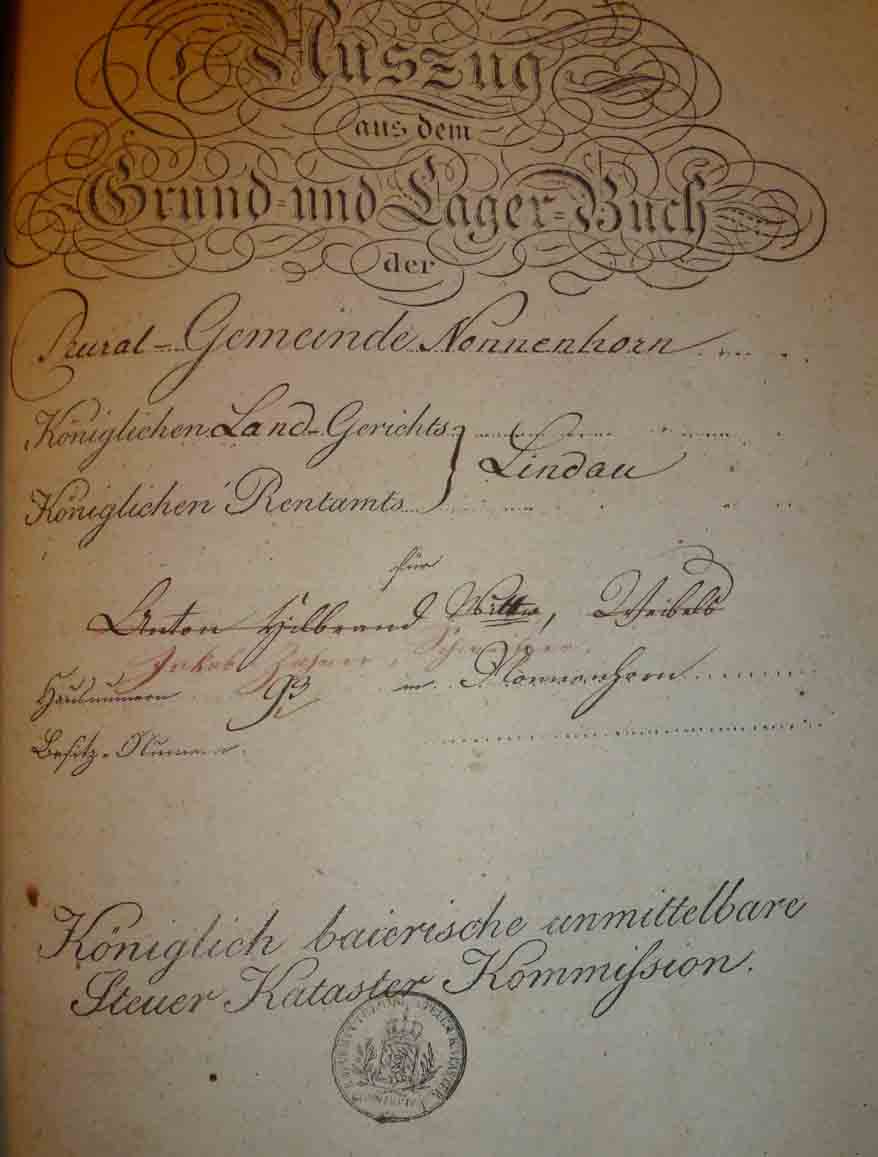 Auszug
aus dem
Grund- und Lager-Buch
der
Rural-Gemeinde Nonnenhorn
Königlichen Land-Gerichts
Lindau
Königlichen Rentamts
für
Anton Hilbrand Wittw, Weibels
Jakob
Hausnummern in Nonnenhorn
Besitz-Nummern
Königlich baierische unmittelbare
Steuer Kataster Kommißion.